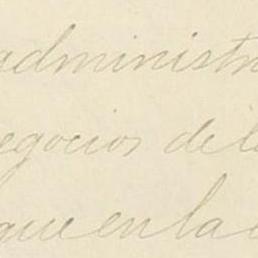 administra
egocios de l
que en la